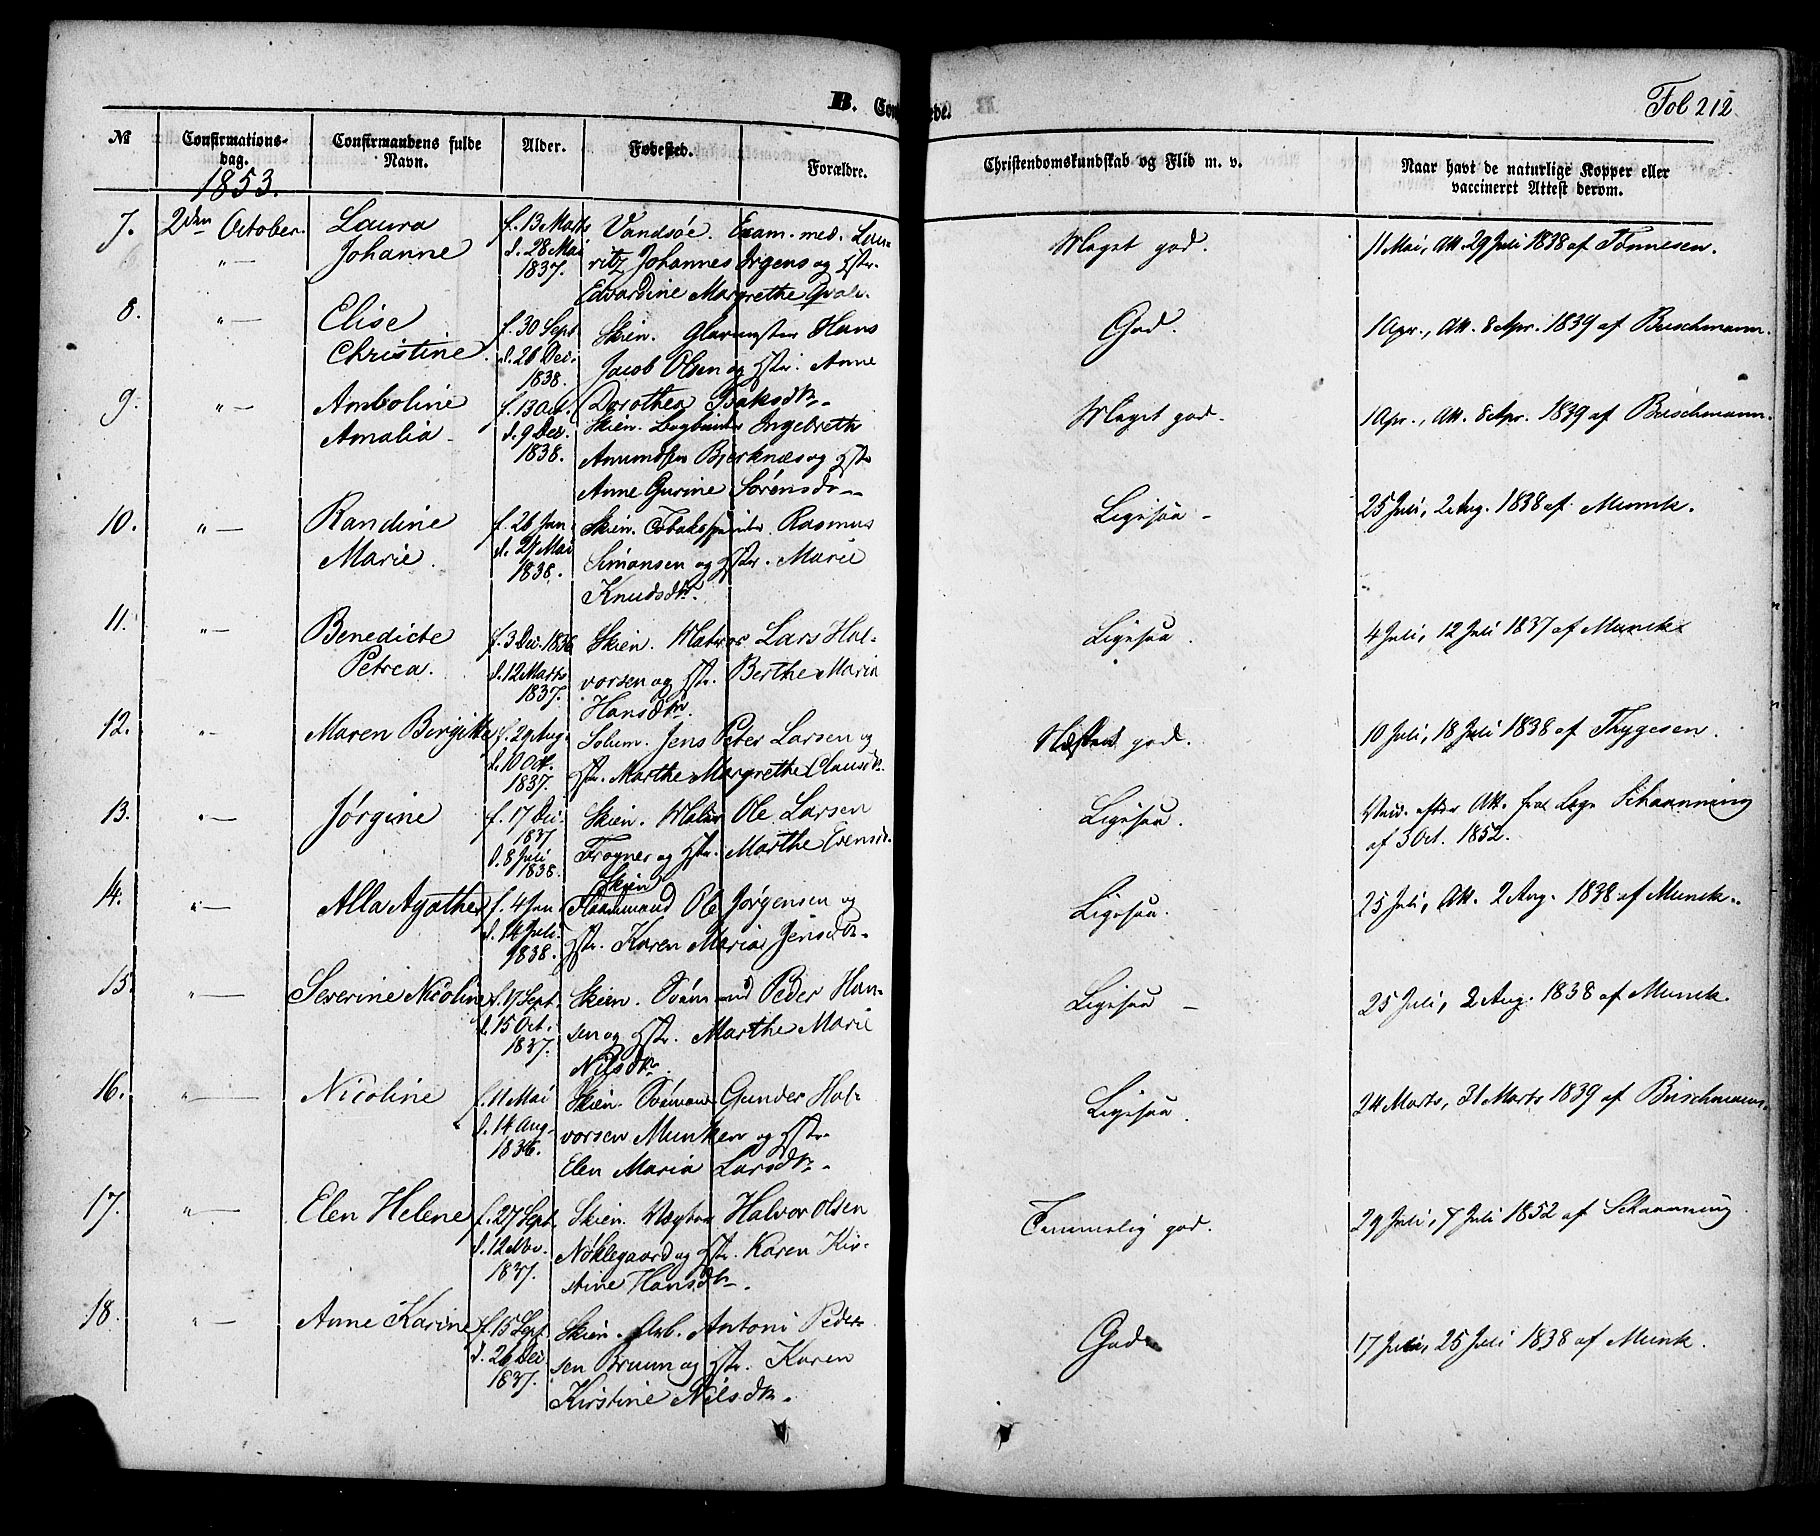 B. Con
ede.
Fol 212.
№
Confirmations-
dag.
1853.
Confirmandens fulde
Navn.
Alder.
Fødested.
Forældre.
Christendomskundskab og Flid m. v.
Naar havt de naturlige Kopper eller
vaccineret Attest derom.
7. 2den October. Laura f. 13 Marts Vandsøe. Exam. med. Lau-
„— Johanne d. 28 Mai ritz Johannes Irgens og Hstr.
1837. Edvardine Margrethe
Meget god. 11 Mai, Att. 29 Juli 1838 af Tønnesen.
8. „— Elise f. 30 Sept Skien. Glarmster Hans
Christine d. 26 Dec. Jacob Olsen og Hstr. Anne
1838. Dorothea Isaksdtr
God. 1 Apr., Att. 8 Apr. 1839 af Buschmann.
9. „— Amboline f. 13 Oct. Skien. Bogbinder Ingebreth
Amalia d. 9 Dec. Amundsen Bjerknæs og Hstr
1838. Anne Gurine Sørensd
Meget god. 1 Apr., Att. 8 Apr. 1839 af Buschmann.
10. „— Randine f. 26 Jan Skien. Tobakspinder Rasmus
Marie. d. 24 Mai Simonsen og Hstr. Marie
1838. Knudsdtr.
Ligesaa 25 Juli, 2 Aug. 1838 af Munck.
11. „— Benedicte f. 3 Dec. 1836 Skien. Matros Lars Hal-
Petrea. d. 12 Marts vorsen og Hstr. Berthe Maria
1837. Hansdtr.
Ligesaa. 4 Juli, 12 Juli 1837 af Munck
12. „ Maren Birgitte f. 29 Aug. Solum. Jens Peter Larsen og
d. 10 Oct. Hstr. Marthe Margrethe Clausdtr.
1837.
Næsten god. 10 Juli, 18 Juli 1838 af Thygesen.
13. „— Jørgine f. 17 Dec. Skien. Matros Ole Larsen
1837 Frogner og Hstr. Marthe Evensd.
d. 8 Juli
1838.
Ligesaa. Vacc. efter Att. fra Læge Schanning
af 3 Oct. 1852.
14. „— Alla Agathe f. 4 Jan Skien
Flaammand Ole Jørgensen og
d. 14 Juli. Hstr. Karen Maria Jensdtr.
1838.
Ligesaa. 25 Juli, Att. 2 Aug. 1838 af Munck.
15. „— Severine Nicoline f. 17 Sept. Skien. Sømand Peder Han-
d. 15 Oct. sen og Hstr. Marthe Marie
1837. Nilsdtr.
Ligesaa 25 Juli, 2 Aug. 1838 af Munck.
16. „— Nicoline f. 11 Mai Skien. Sømand Gunder Hal-
d. 14 Aug. vorsen Munken og Hstr.
1836. Elen Maria Larsdtr.
Ligesaa. 24 Marts, 31 Marts 1839 af Buschmann.
17. „— Elen Helene f. 27 Sept. Skien. Vægter Halvor Olsen
d. 12 Nov. Nøklegaard og Hstr. Karen Kir-
1837. stine Hansdtr.
Temmelig god. 29 Juli, 7 Juli 1852 af Schanning.
18. „— Anne Karine f. 15 Sept Skien. Arb. Antoni Peder-
d. 26 Dec sen Bruun og Hstr. Karen
1837. Kirstine Nilsdtr.
God 17 Juli, 25 Juli 1838 af Munk.